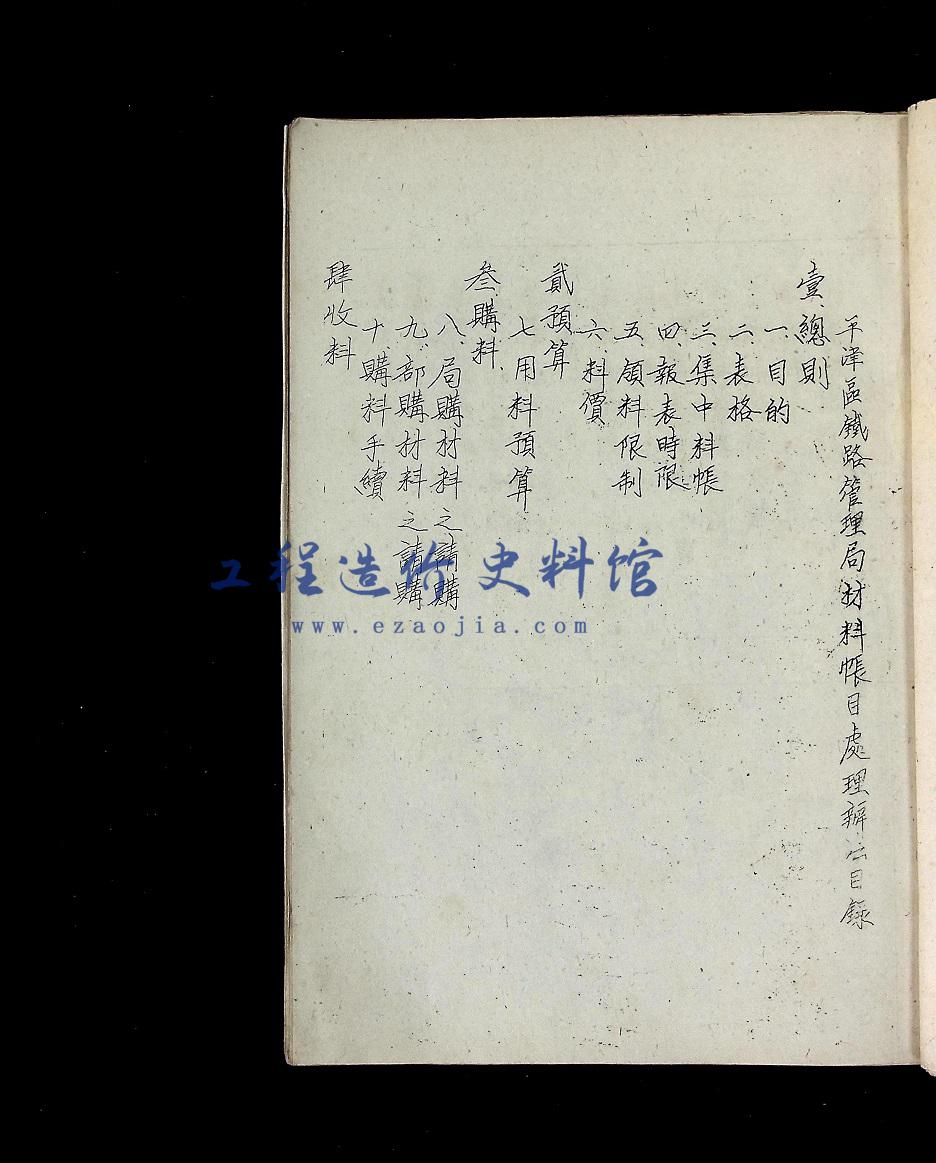 平津區鐵路管理局材料帳目處理辦法目錄
壹、總則
一、目的
二、表格
三、集中料帳
四、報表時限
五、領料限制
六、料價
貳預算
七用料預算
叁購料
八、局購材料之請購
九、部購材料之請購
十、購料手續
肆收料
工程造价史料馆
www.ezaojia.com